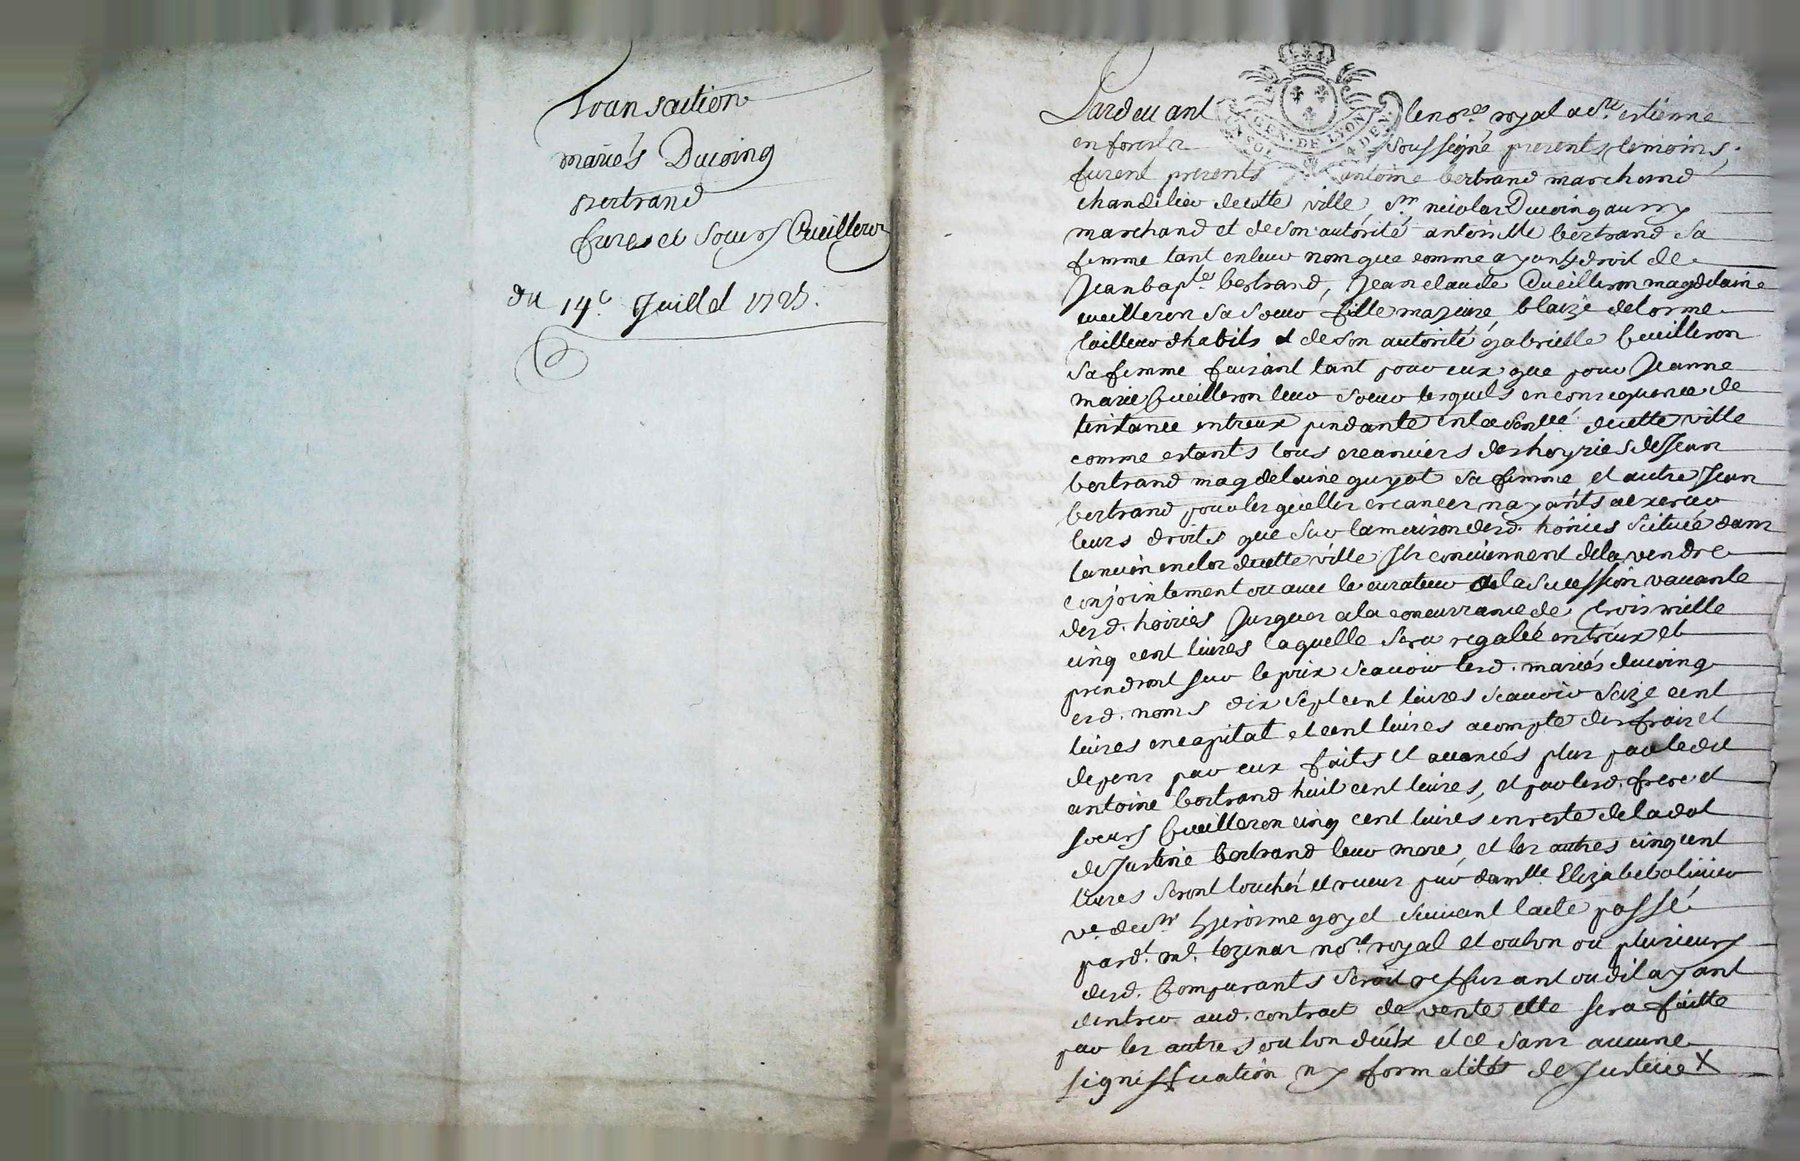 Transaction
mariés Ducoing
Bertrand
freres et soeurs Cueilleron
du 14e. Juillet 1725.
GEN. DE LYON
UN SOL 4 DEN.
Pardevant le nore. royal a St. estienne
en forest soussigné presents temoins,
furent presents antoine bertrand marchand
chandelier de cette ville, Sr. nicolas Ducoing aussy
marchand et de son autorité antoinette bertrand sa
femme tant en leur nom que comme ayants droit de
Jean bapte. bertrand, Jean claude Cueilleron magdelaine
cueilleron sa soeur fille majeure, blaize delorme
tailleur d'habits et de son autorité gabrielle Cueilleron
sa femme faisant tant pour eux que pour Jeanne
marie Cueilleron leur soeur lesquels en consequence de
l'instance entreux pendante en la de cette ville
comme estants tous creanciers des hoyries de Jean
bertrand magdelaine guyot sa femme et autre Jean
bertrand pour lesquelles creances n'ayants a exercer
leurs droits que sur la maison desd. hoiries scituée dans
l'ancien enclos de cette ville Ils conviennent de la vendre
conjointement ou avec le curateur de la succession vacante
desd. hoiries Jusques a la concurrance de trois mille
cinq cent livres laquelle sera regalée entreux et
prendront sur le prix scavoir lesd. mariés ducoing
esd. noms dix sept cent livres scavoir seize cent
livres en capital et cent livres acompte des frais et
depens par eux faits et avancés plus par ledit
antoine bertrand huit cent livres, et par lesd. frere et
soeurs Cueilleron cinq cent livres en reste de la dot
de Justine bertrand leur mere, et les autres cinq cent
livres seront touchés et receus par damlle. Elizabet olivier
ve. de Sr. hierosme goyet suivant l'acte passé
pardt. me. nore. royal et ou l'on ou plusieurs
desd. Comparants seroit reffusant ou dilayant
d'entrer aud. contract de vente elle sera faitte
par les autres ou l'on d'eux et ce sans aucune
signiffication ny formalités de Justice X